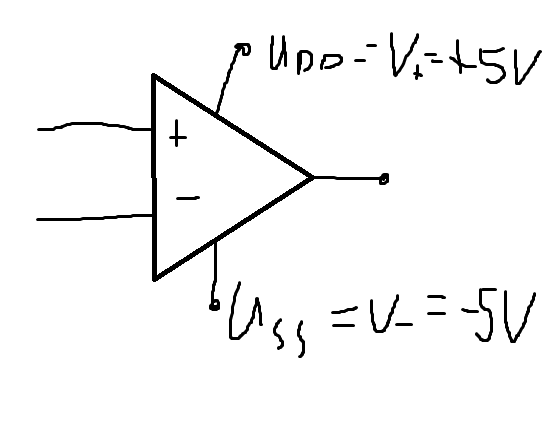 U_DD = V_+ = +5V
+
−
U_SS = V_- = -5V